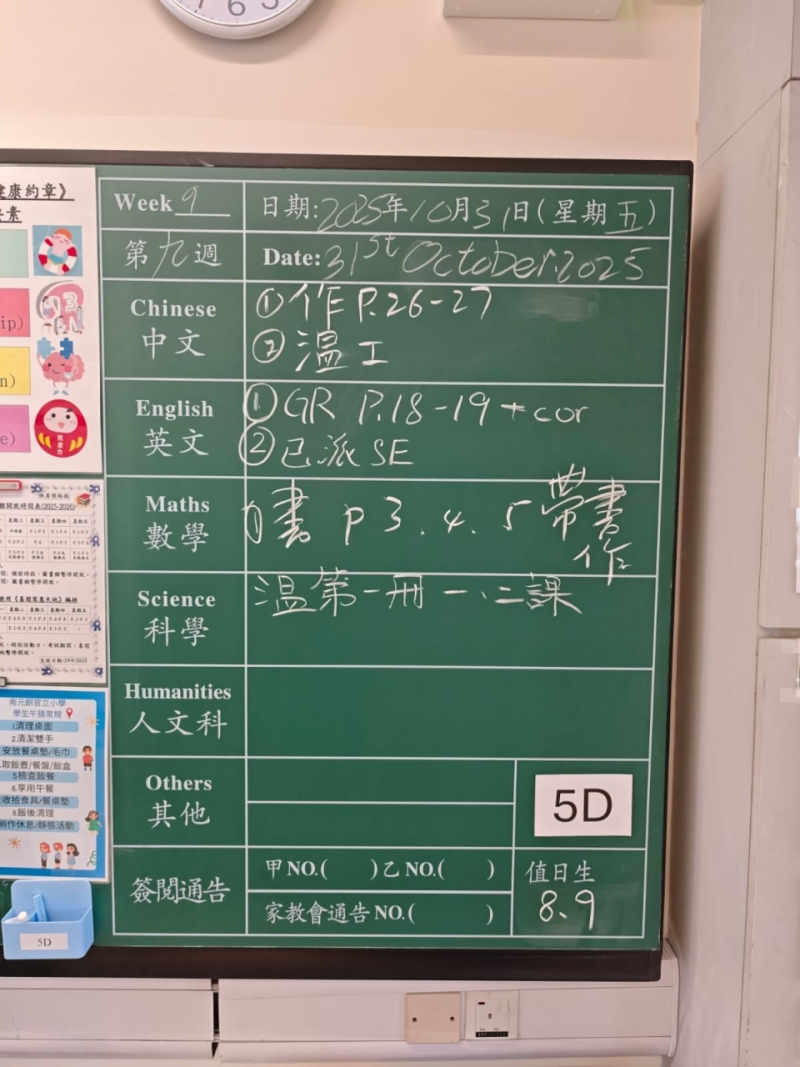 7 6 5
健康約章》
素
ip)
n)
e)
Week 9
日期:2025年10月31日(星期五)
第九週
Date: 31st October.2025
Chinese
中文
①作 P.26-27
②温工
English
英文
①GR P.18-19 + cor
②已派 SE
Maths
數學
1)書 p 3.4.5 帶書
作
Science
科學
温第一冊 一、二課
Humanities
人文科
Others
其他
5D
簽閱通告
甲NO.( )乙NO.( )
家教會通告NO.( )
值日生
8、9
南元朗官立小學
學生午膳常規
1.清理桌面
2.清潔雙手
安放餐桌墊/毛巾
取飯壺/餐盤/飯盒
5檢查飯餐
6.享用午餐
收拾食具/餐桌墊
8飯後清理
稍作休息/靜態活動
5D